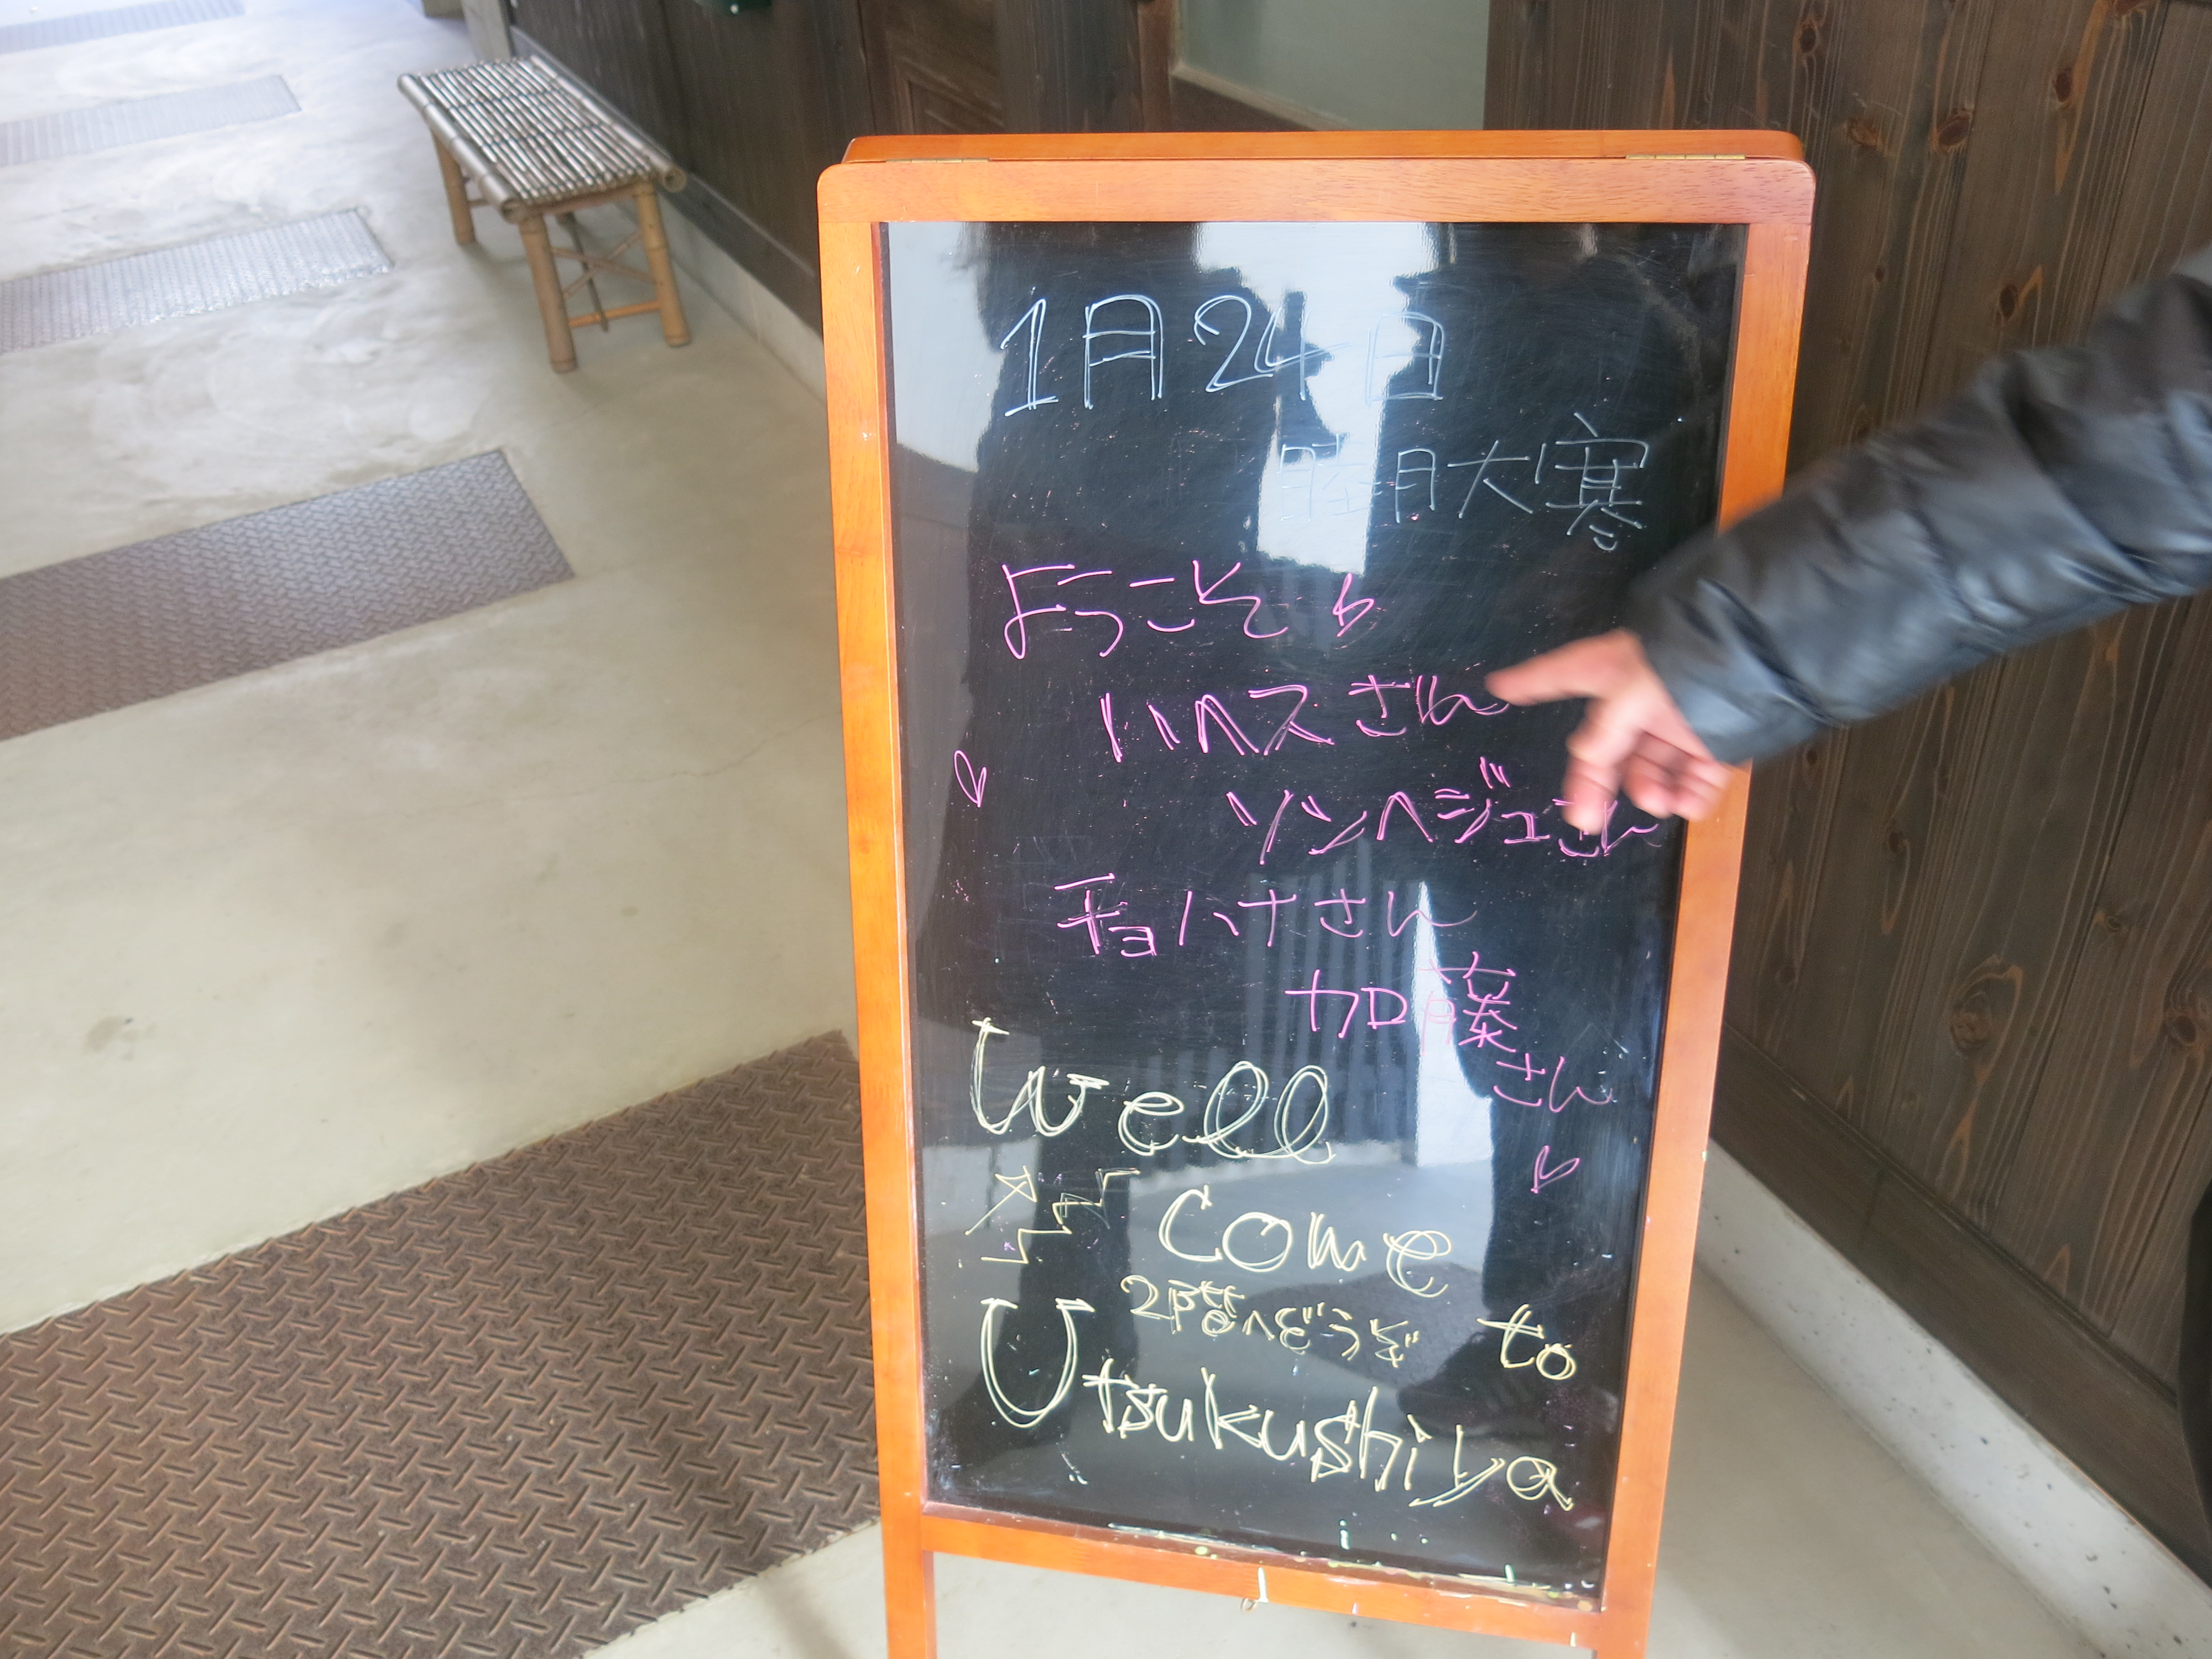 1月24日
睦月大寒
ようこそ
ハヘスさん
ソンヘジュさん
チョハナさん
加藤
さん
Well
come
2階へどうぞ
to
Utsukushiya